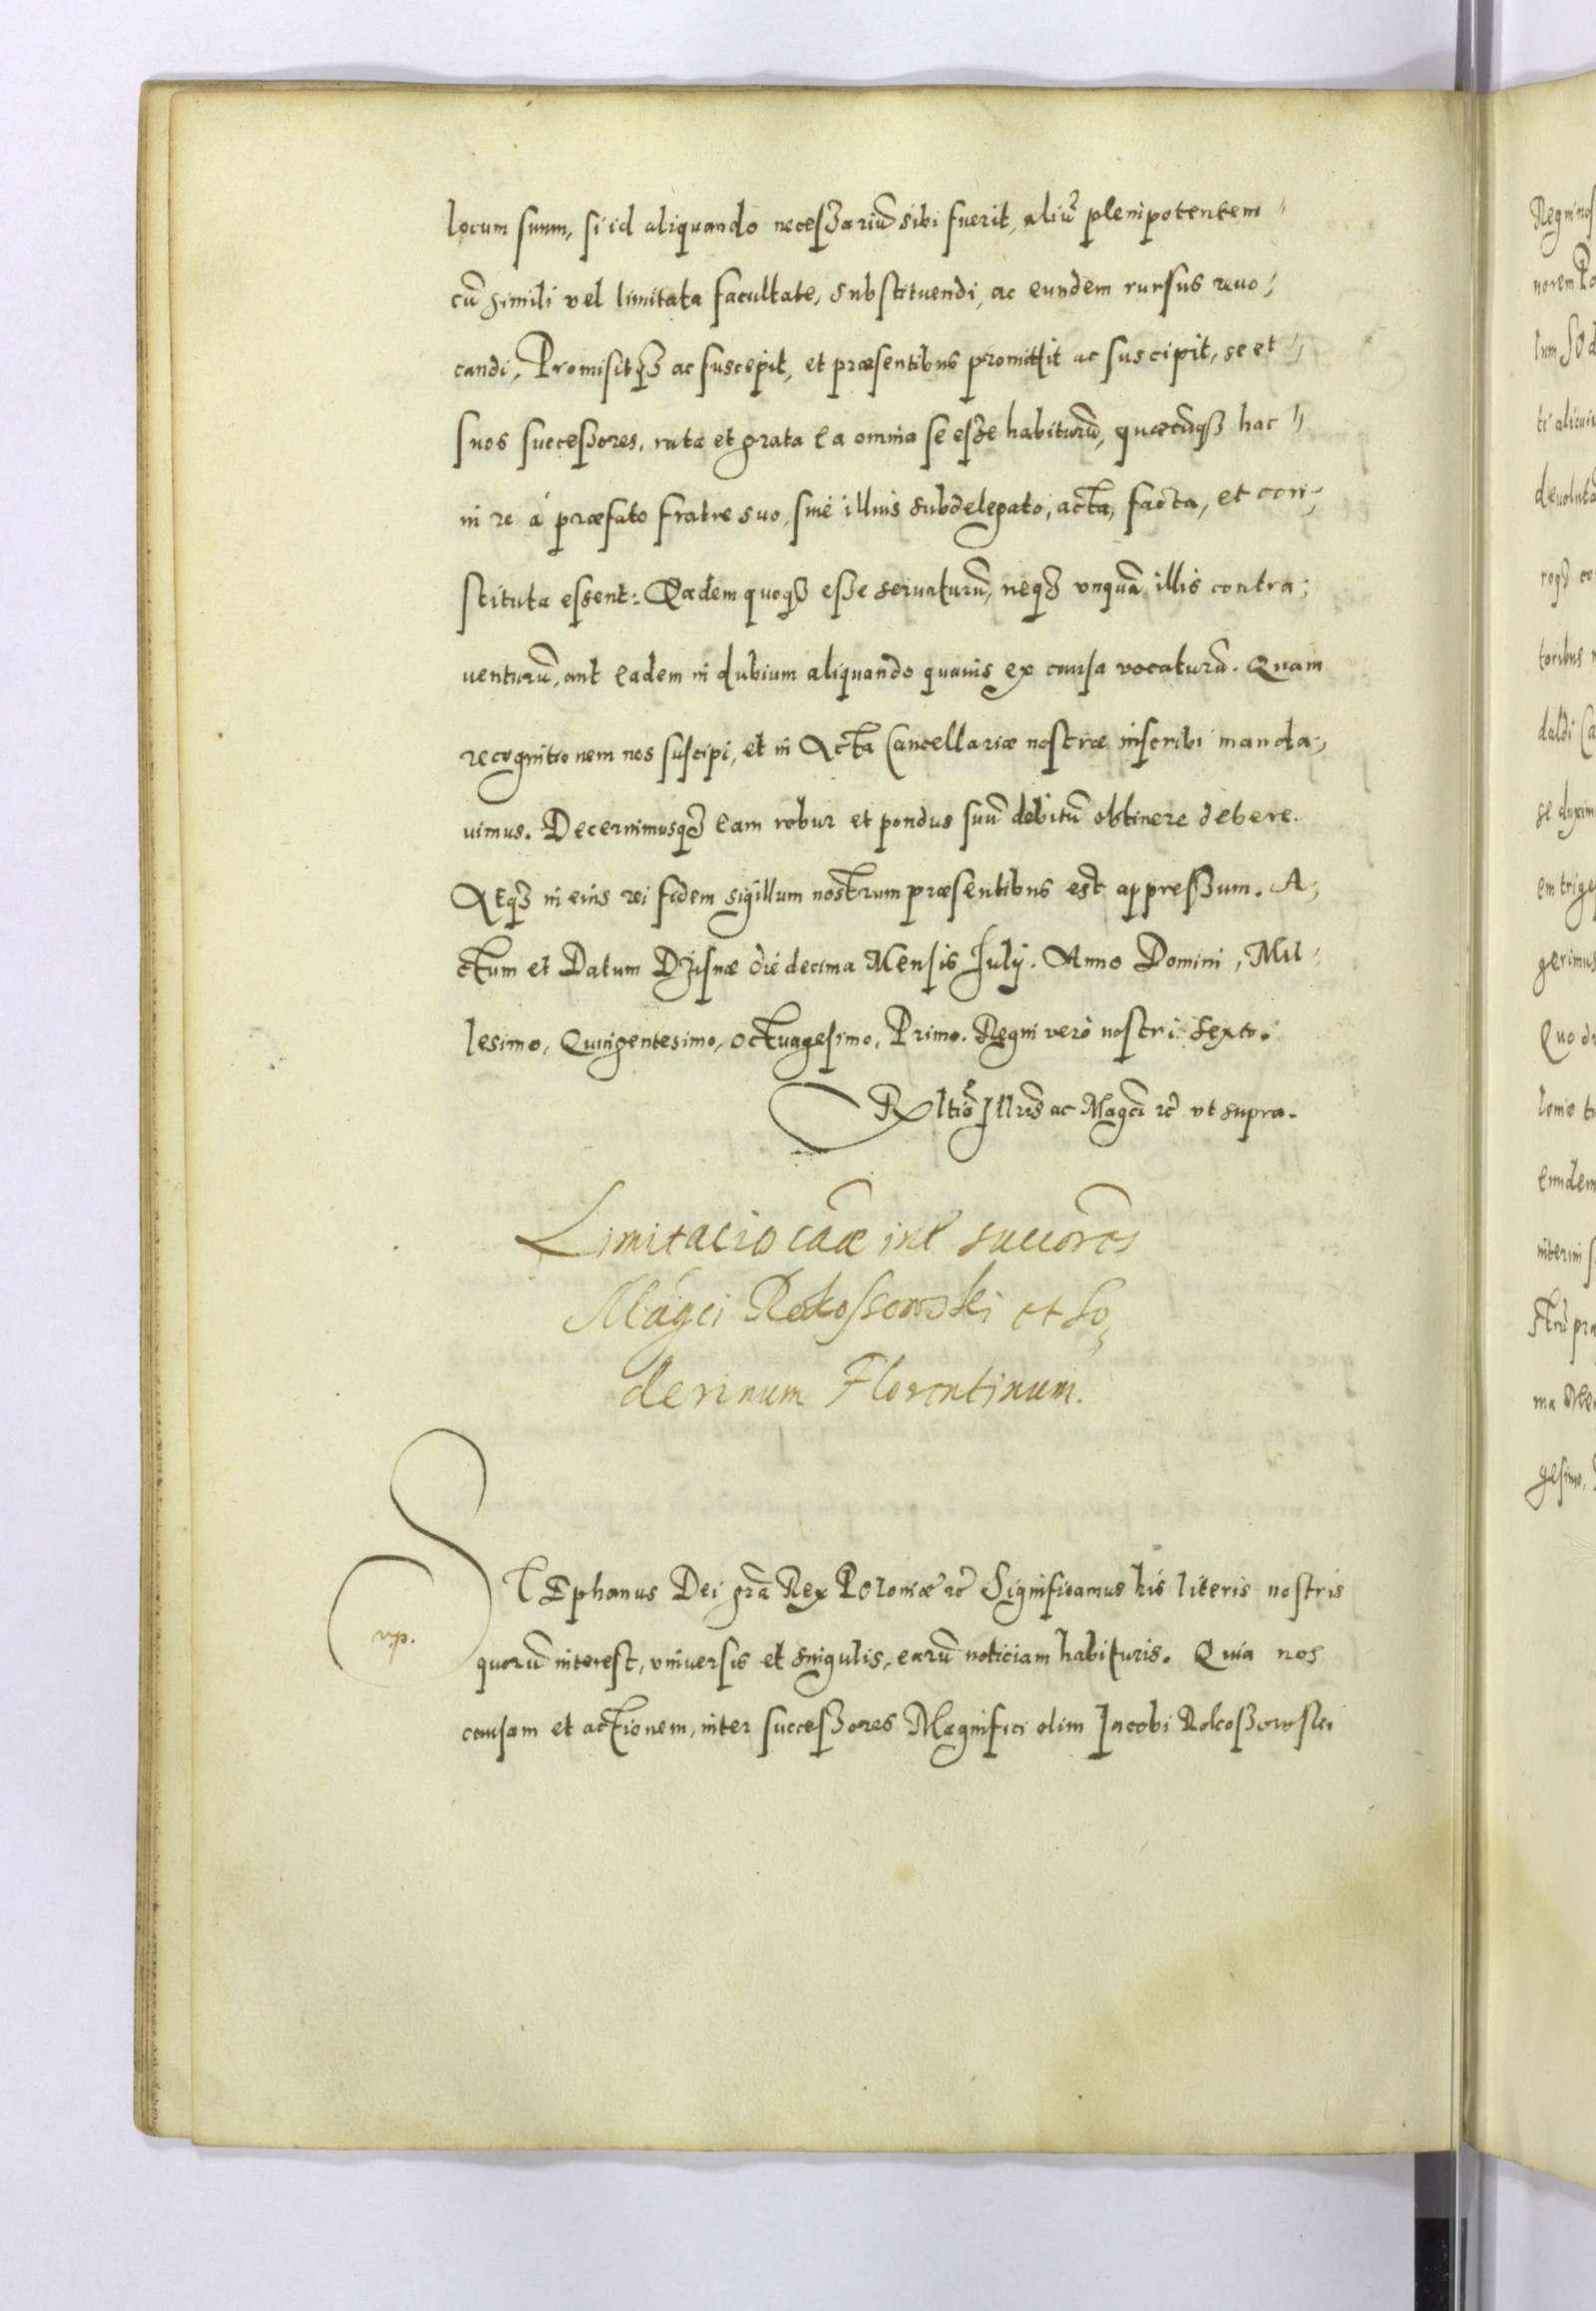 locum suum, si id aliquando necessariũ sibi fuerit, aliũ plenipotentem
cũ simili vel limitata facultate, substituendi, ac eundem rursus reuo-
candi, Promisitq3 ac suscepit, et præsentibus promittit ac suscipit, se et
suos successores, rata et grata ea omnia se esse habiturũ, quæcũq3 hac
in re á præfato fratre suo, siué illius subdelegato, acta, facta, et con-
stituta essent: Eadem quoq3 esse seruaturũ, neq3 vnquã illis contra-
uenturũ, aut eadem in dubium aliquando quauis ex causa vocaturũ. Quam
recognitionem nos suscipi, et in Acta Cancellariæ nostræ inscribi manda-
uimus. Decernimusq3 eam robur et pondus suũ debitũ obtinere debere.
Atq3 in eius rei fidem sigillum nostrum præsentibus est appressum. A-
ctum et Datum Dzisnæ die decima Mensis Iulij. Anno Domini, Mil-
lesimo, Quingentesimo, octuagesimo, Primo. Regni verò nostri sexto.
Rltiõ Illris ac Magci rc̃ vt supra.
Limitacio cãæ int succores
Magci Rokossowski et So-
derinum Florentinum.
STEphanus Dei grã Rex Poloniæ rc̃ Significamus his literis nostris
quorũ interest, vniuersis et singulis, earũ noticiam habituris. Quia nos
causam et actionem, inter successores Magnifici olim Jacobi Rokossowski